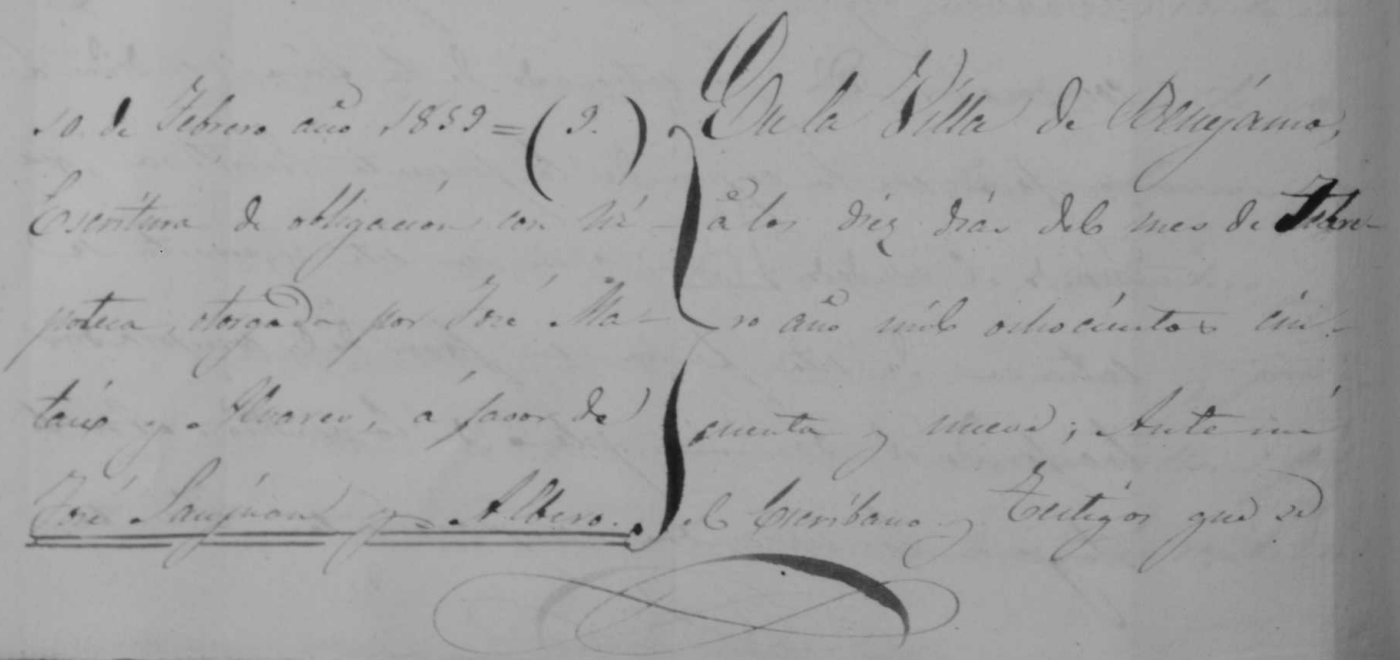 10 de Febrero año 1859= (9.)
Escritura de obligacion con hi-
poteca, otorgada por José Ma-
taix y Alvarez, á favor de
José Sanjuan y Albero.
En la Villa de Benejama,
á los diez dias del mes de Febre-
ro año mil ochocientos cin-
cuenta y nueve; Ante mi
el Escribano y Testigos que se